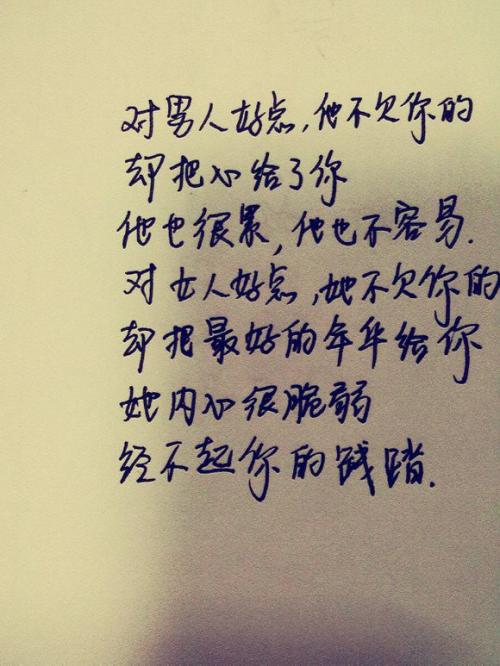 对男人好点,他不欠你的
却把心给了你
他也很累,他也不容易.
对女人好点,她不欠你的
却把最好的年华给你
她内心很脆弱
经不起你的践踏.